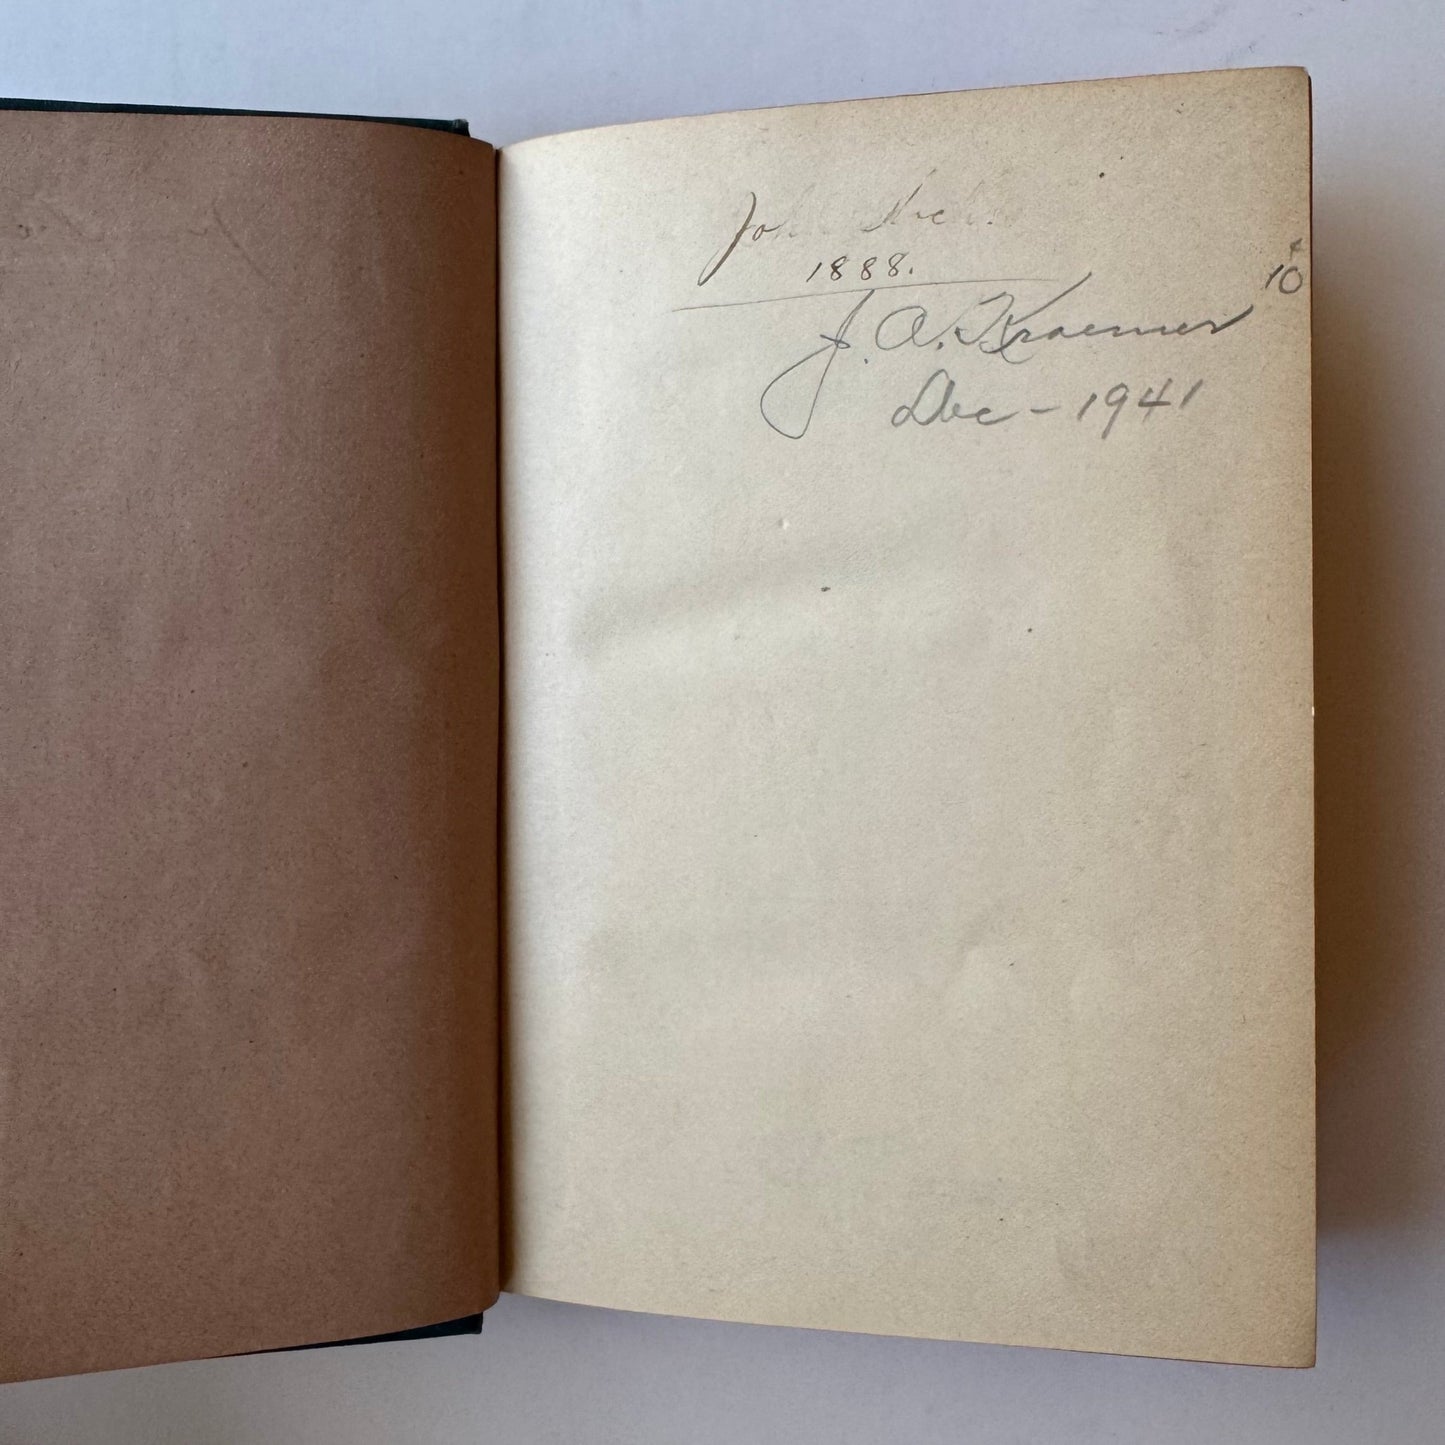 John
1888.
10¢
J. A. Kraemer
Dec - 1941